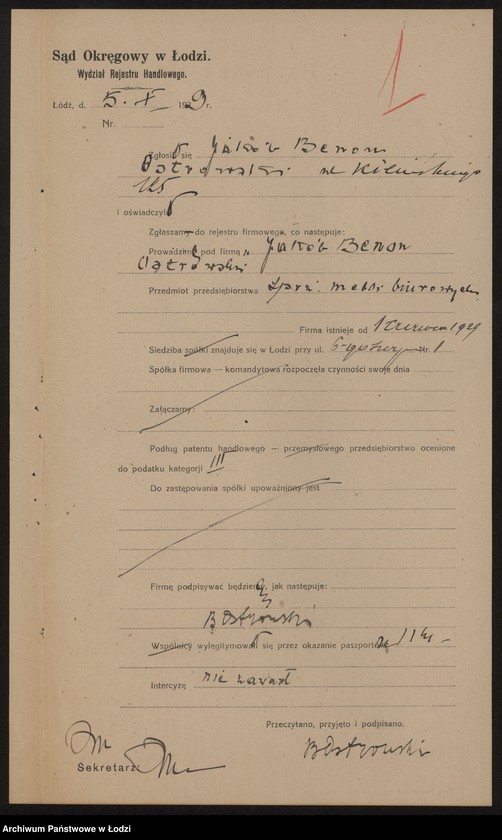 1
Sąd Okręgowy w Łodzi.
Wydział Rejestru Handlowego.
Łódź, d. 5. X 1929 r.
Nr.
Zgłosił się Jakób Benon
Ostrowski ul. Kilińskiego
125
i oświadczył
Zgłaszam do rejestru firmowego, co następuje:
Prowadzimy pod firmą „Jakób Benon
Ostrowski
Przedmiot przedsiębiorstwa sprz. mebli biurowych
Firma istnieje od 1 czerwca 1929
Siedziba spółki znajduje się w Łodzi przy ul. nr. 1
Spółka firmowa — komandytowa rozpoczęła czynności swoje dnia
Załączamy:
Podług patentu handlowego — przemysłowego przedsiębiorstwo ocenione
do podatku kategorji III
Do zastępowania spółki upoważniony jest
Firmę podpisywać będzie, jak następuje:
B Ostrowski
Wspólnicy wylegitymował się przez okazanie paszportów
Intercyzę nie zawarł
Przeczytano, przyjęto i podpisano.
B Ostrowski
Sekretarz:
Archiwum Państwowe w Łodzi